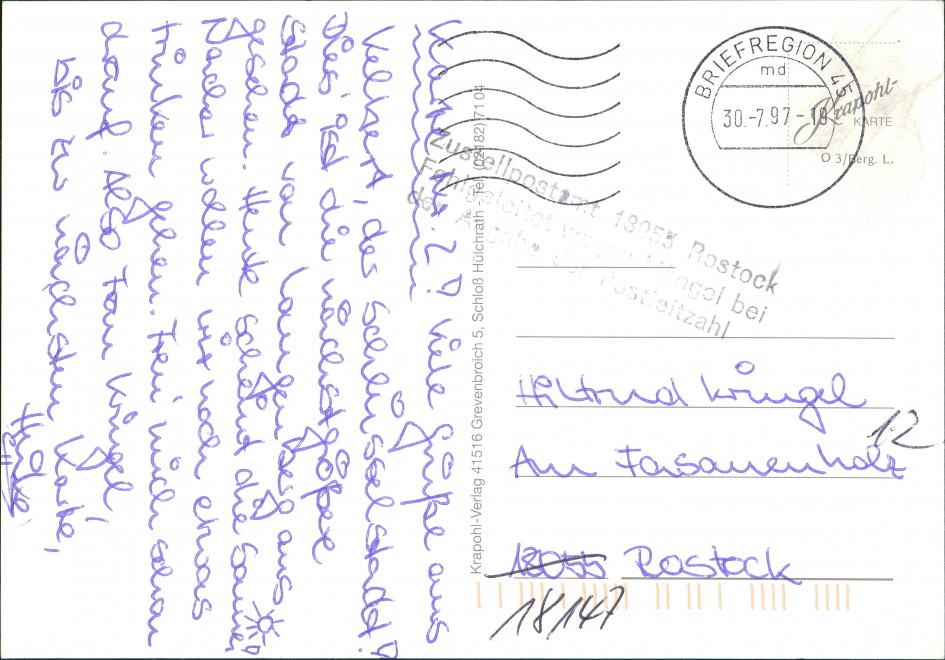 Karte Nr. 2!! Viele Grüße aus
Velbert, der Schlüsselstadt!
Dies ist die nächstgrößere
Stadt von Langenberg aus
gesehen. Heute scheint die Sonne!
Nachher wollen wir noch etwas
trinken gehen. Freu mich schon
drauf. Also Frau Kringel,
bis zur nächsten Karte,
Heike
Krapohl-Verlag 41516 Grevenbroich 5, Schloß Hülchrath Tel. (02182) 7104
BRIEFREGION 45
md
30.-7.97-18
Krapohl-
KARTE
O 3/Berg. L.
Zustellpostamt 18055 Rostock
Fehlgeleitet wegen Mängel bei
der Angabe der Postleitzahl
Hiltrud Kringel
Am Fasanenholz 12
18055 Rostock
18147